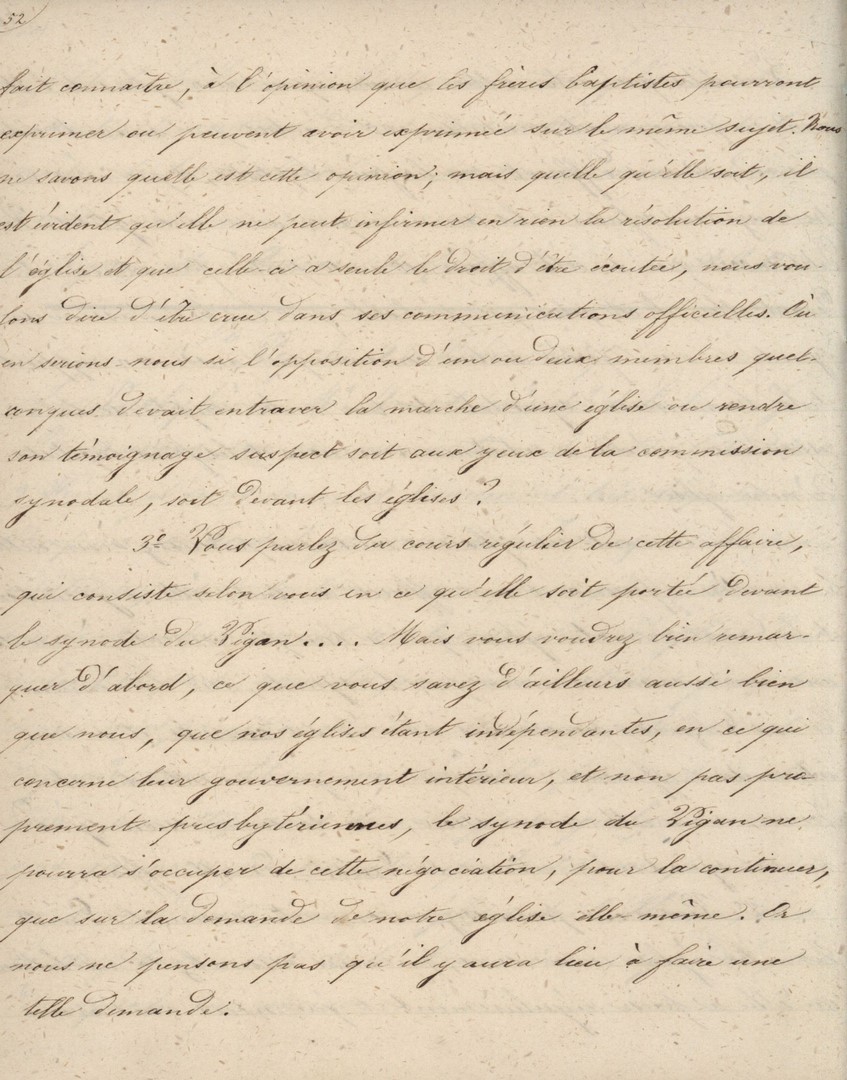 52
fait connaître, à l'opinion que les frères baptistes pourront
exprimer ou peuvent avoir exprimée sur le même sujet. Nous
ne savons quelle est cette opinion; mais quelle qu'elle soit, il
est évident qu'elle ne peut infirmer en rien la résolution de
l'église et que celle-ci a seule le droit d'être écoutée, nous vou-
lons dire d'être crue dans ses communications officielles. Où
en serions-nous si l'opposition d'un ou deux membres quel-
conques devait entraver la marche d'une église ou rendre
son témoignage suspect soit aux yeux de la commission
synodale, soit devant les églises?
3e Vous parlez du cours régulier de cette affaire,
qui consiste selon vous en ce qu'elle soit portée devant
le synode du Vigan.... Mais vous voudrez bien remar-
quer d'abord, ce que vous savez d'ailleurs aussi bien
que nous, que nos églises étant indépendantes, en ce qui
concerne leur gouvernement intérieur, et non pas pro-
prement presbytériennes, le synode du Vigan ne
pourra s'occuper de cette négociation, pour la continuer,
que sur la demande de notre église elle-même. Or
nous ne pensons pas qu'il y aura lieu à faire une
telle demande.